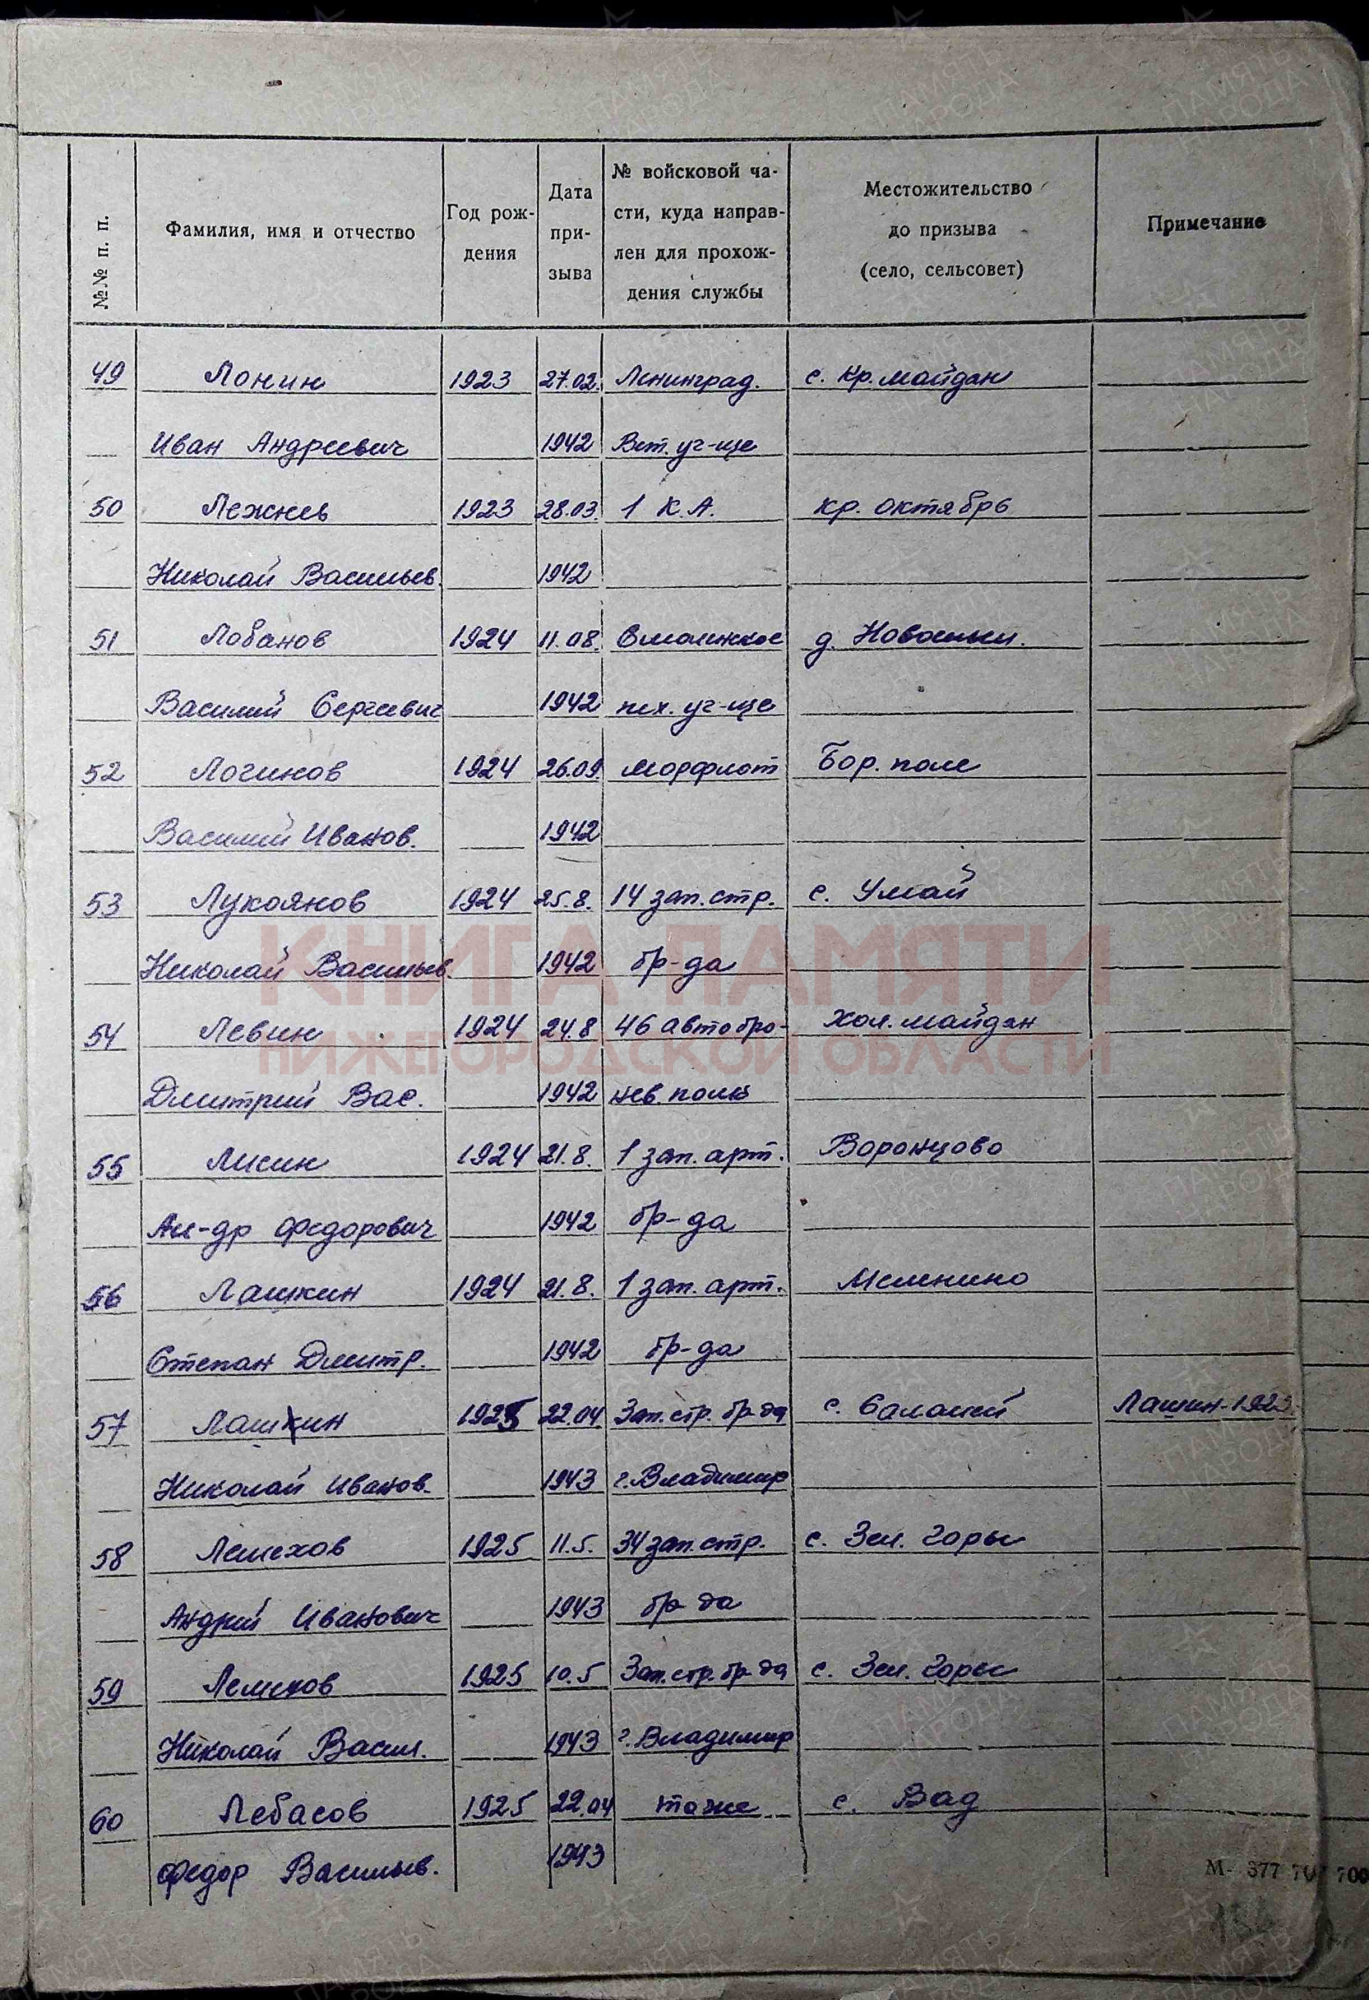 №№ п. п.
Фамилия, имя и отчество
Год рож-
дения
Дата
при-
зыва
№ войсковой ча-
сти, куда направ-
лен для прохож-
дения службы
Местожительство
до призыва
(село, сельсовет)
Примечание
49 Лонин 1923 27.02. Ленинград. с. Кр. майдан
Иван Андреевич 1942 Вет. уч-ще
50 Лежнев 1923 28.03. 1 К.А. Кр. октябрь
Николай Васильев. 1942
51 Лобанов 1924 11.08. д. Новосельи.
Василий Сергеевич 1942 пех. уч-ще
52 Логинов 1924 26.09 морфлот Бор. поле
Василий Иванов. 1942
53 Лукоянов 1924 25.8. 14 зап. стр. с. Умай
Николай Васильев. 1942 бр-да
54 Левин 1924 24.8 46 автобро- Хол. майдан
Дмитрий Вас. 1942 нев. полк
55 Лисин 1924 21.8. 1 зап. арт. Воронцово
Ал-др Федорович 1942 бр-да
56 Лашкин 1924 21.8. 1 зап. арт. Меленино
Степан Дмитр. 1942 бр-да
57 Лашкин 1925 22.04 Зап. стр. бр-да с. Салалей Лашин-1923.
Николай Иванов. 1943 г. Владимир
58 Лемехов 1925 11.5. 34 зап. стр. с. Зел. Горы
Андрей Иванович 1943 бр-да
59 Лемехов 1925 10.5 Зап. стр. бр-да с. Зел. Горы
Николай Васил. 1943 г. Владимир
60 Лебасов 1925 22.04 тоже с. Вад
Федор Васильев. 1943
М- 377 70 700
КНИГА ПАМЯТИ
НИЖЕГОРОДСКОЙ ОБЛАСТИ
ПАМЯТЬ
НАРОДА